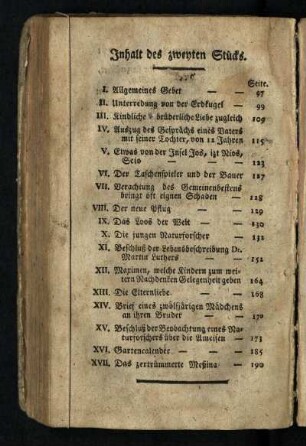 Inhalt des zweyten Stücks.
Seite.
I. Allgemeines Gebet — — 97
II. Unterredung von der Erdkugel — 99
III. Kindliche & brüderliche Liebe zugleich 109
IV. Auszug des Gesprächs eines Vaters
mit seiner Tochter, von 12 Jahren 115
V. Etwas von der Insel Jos, izt Nios,
Scio — — — 123
VI. Der Taschenspieler und der Bauer 127
VII. Verachtung des Gemeinenbestens
bringt oft eignen Schaden — 128
VIII. Der neue Pflug — — 129
IX. Das Loos der Welt — — 130
X. Die jungen Naturforscher — 131
XI. Beschluß der Lebensbeschreibung Dr.
Martin Luthers — — 151
XII. Maximen, welche Kindern zum wei-
tern Nachdenken Gelegenheit geben 164
XIII. Die Elternliebe — — 168
XIV. Brief eines zwölfjärigen Mädchens
an ihren Bruder — — 170
XV. Beschluß der Beobachtung eines Na-
turforschers über die Ameisen — 171
XVI. Gartencalender — — 185
XVII. Das zertrümmerte Meßina — 190